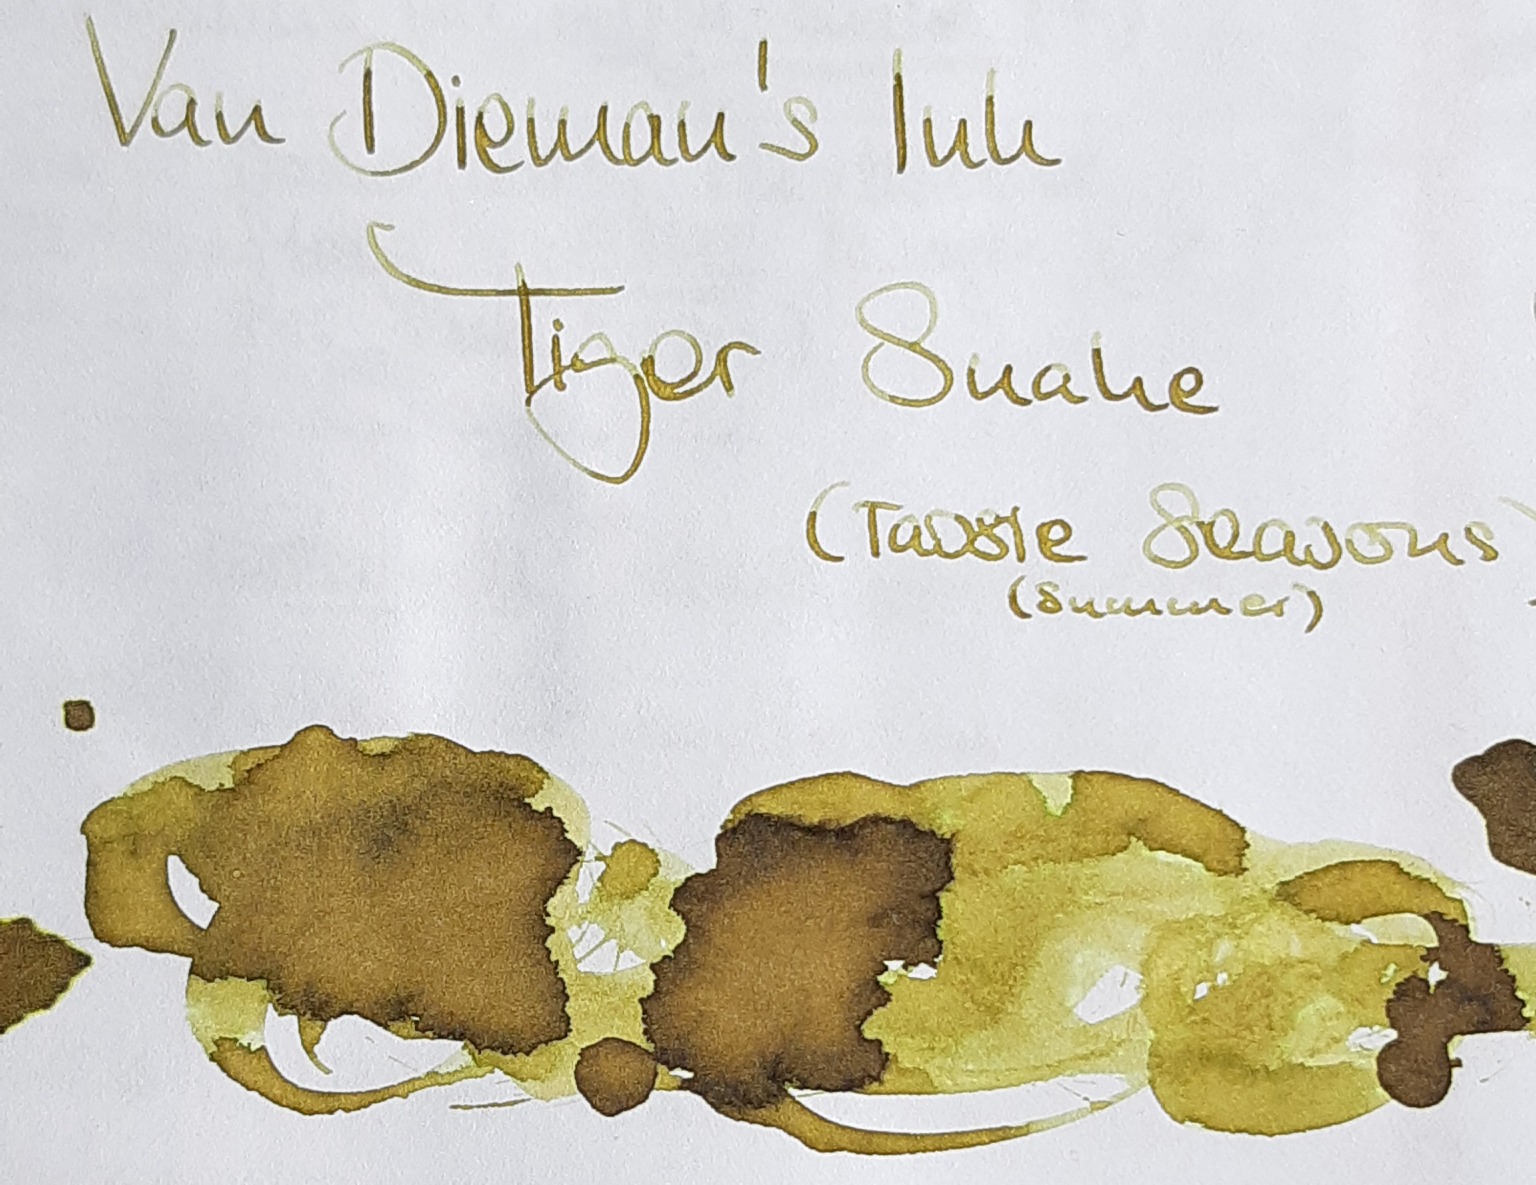 Van Dieman's Ink
Tiger Snake
(Tassie Seasons)
(Summer)